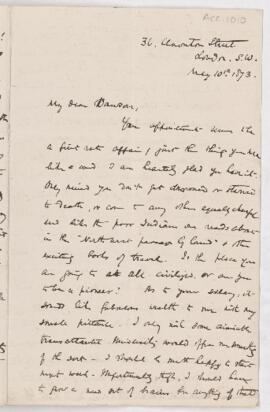 ACC. 1010
36. Claverton Street
London. S.W.
May 10th 1873.
My dear Dawson,
Your appointment seems to be
a first rate affair, just the thing you
like & and I am heartily glad you have it.
Only mind you don't get drowned or starved
to death, or come to any other equally cheerful
end like the poor Indians one reads about
in the "North west passage by land" & other
exciting books of travel. Is the place you
are going to at all civilized, or are you
to be a pioneer? As to your salary, it
sounds like fabulous wealth to me with my
small pittance. I only wish some amiable
transatlantic University would offer me
of the sort. I should be most happy to start
next week. Unfortunately though, I should have
to grow a new set of brains for anything of that